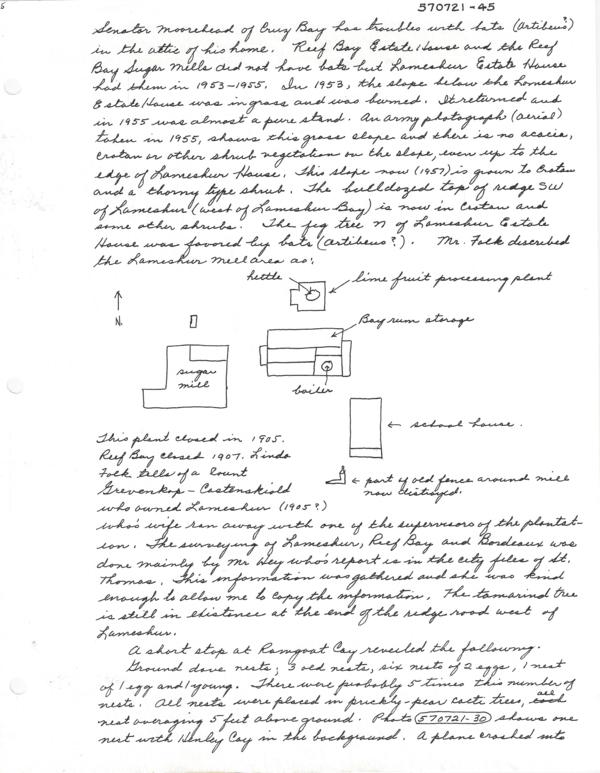 570721-45
Senator Moorehead of Cruz Bay has troubles with bats (Artibeus?)
in the attic of his home. Reef Bay Estate House and the Reef
Bay Sugar Mills did not have bats but Lameshur Estate House
had them in 1953-1955. In 1953, the slope below the Lameshur
Estate House was in grass and was burned. It returned and
in 1955 was almost a pure stand. An army photograph (aerial)
taken in 1955, shows this grass slope and there is no acacia,
Croton or other shrub vegetation on the slope, even up to the
edge of Lameshur House. This slope now (1957) is grown to Croton
and a thorny type shrub. The bulldozed top of ridge SW
of Lameshur (west of Lameshur Bay) is now in Croton and
some other shrubs. The fig tree N of Lameshur Estate
House was favored by bats (Artibeus?). Mr. Folk described
the Lameshur mill area as:
kettle
lime fruit processing plant
N.
Bay rum storage
sugar
mill
boiler
← school house.
This plant closed in 1905.
Reef Bay closed 1907. Linda
Folk tells of a Count
← part of old fence around mill
now distroyed.
Grevenkop-Castenskiold
who owned Lameshur (1905?)
who's wife ran away with one of the supervisors of the plantat-
ion. The surveying of Lameshur, Reef Bay and Bordeaux was
done mainly by Mr Wey who's report is in the city files of St.
Thomas. This information was gathered and she was kind
enough to allow me to copy the information. The tamarind tree
is still in existance at the end of the ridge road west of
Lameshur.
A short stop at Ramgoat Cay reveiled the following.
Ground dove nests; 3 old nests, six nests of 2 eggs, 1 nest
of 1 egg and 1 young. There were probably 5 times this number of
nests. All nests were placed in prickly-pear cacti trees, all
nest averaging 5 feet above ground. Photo 570721-30 shows one
nest with Henley Cay in the background. A plane crashed into